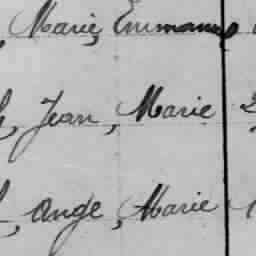 , Marie, Emmanu
, Jean, Marie 2
, Ange, Marie